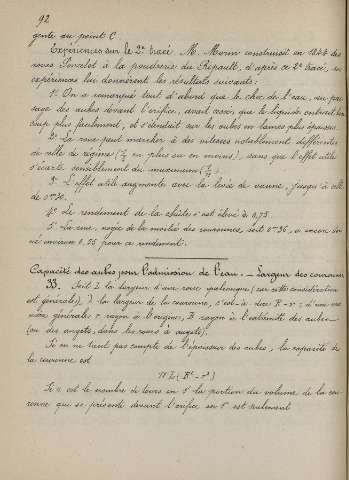 92
gente au point C.
Expériences sur le 2e tracé. M. Morin construisit en 1844 des
roues Poncelot à la poudrerie du Ripault, d'après ce 2e tracé,
expériences lui donnèrent les résultats suivants:
1° On a remarqué tout d'abord que le choc de l'eau, au pas-
sage des aubes devant l'orifice, avait cessé, que le liquide entrait beau-
coup plus facilement, et s'étendait sur les aubes en lames plus épaisses.
2° La roue peut marcher à des vitesses notablement différentes
de celle de régime en plus ou en moins, sans que l'effet utile
s'écarte sensiblement du maximum
3° L'effet utile augmente avec la levée de vanne, jusqu'à celle
de 0m30.
4° Le rendement de la chute s'est élevé à 0,75.
5° La roue, noyée de la moitié des couronnes, soit 0m36, a encore don-
né environ 0,25 pour ce rendement.
Capacité des aubes pour l'admission de l'eau. — Largeur des couronnes
33. Soit L la largeur d'une roue quelconque (car cette considération
est générale), λ la largeur de la couronne, c'est-à-dire R-r: d'une ma-
nière générale r rayon à l'origine, R rayon à l'extrémité des aubes
(ou des augets, dans les roues à augets).
Si on ne tient pas compte de l'épaisseur des aubes, la capacité de
la couronne est
πL(R²-r²)
Si n est le nombre de tours en 1" la portion du volume de la cou-
ronne qui se présente devant l'orifice en 1" est seulement